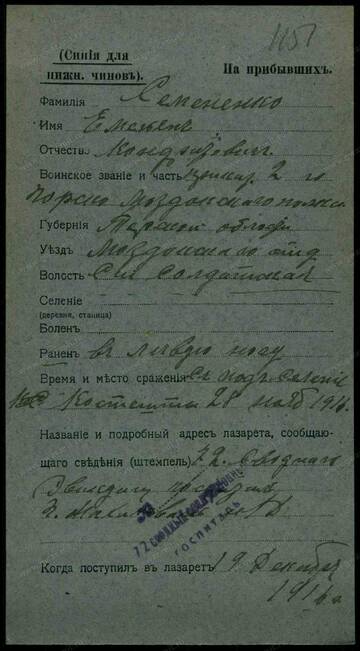 1151
(Синія для
нижн. чиновъ).
На прибывшихъ.
Фамилія Семененко
Имя Емельянъ
Отчество Кондратовичъ
Воинское званіе и часть 2 го
Горско Моздокскаго полка
Губернія Терской области
Уѣздъ Моздокскаго отд
Волость Ст Солдатская
Селеніе
(деревня, станица)
Боленъ
Раненъ въ лѣвую ногу
Время и мѣсто сраженія подъ селеніе
28 нояб 1916.
Названіе и подробный адресъ лазарета, сообщаю-
щаго свѣдѣнія (штемпель) 72 Сводного
72 СВОДНЫЙ
ГОСПИТАЛЬ
Когда поступилъ въ лазаретъ 19 Декабря
1916 г